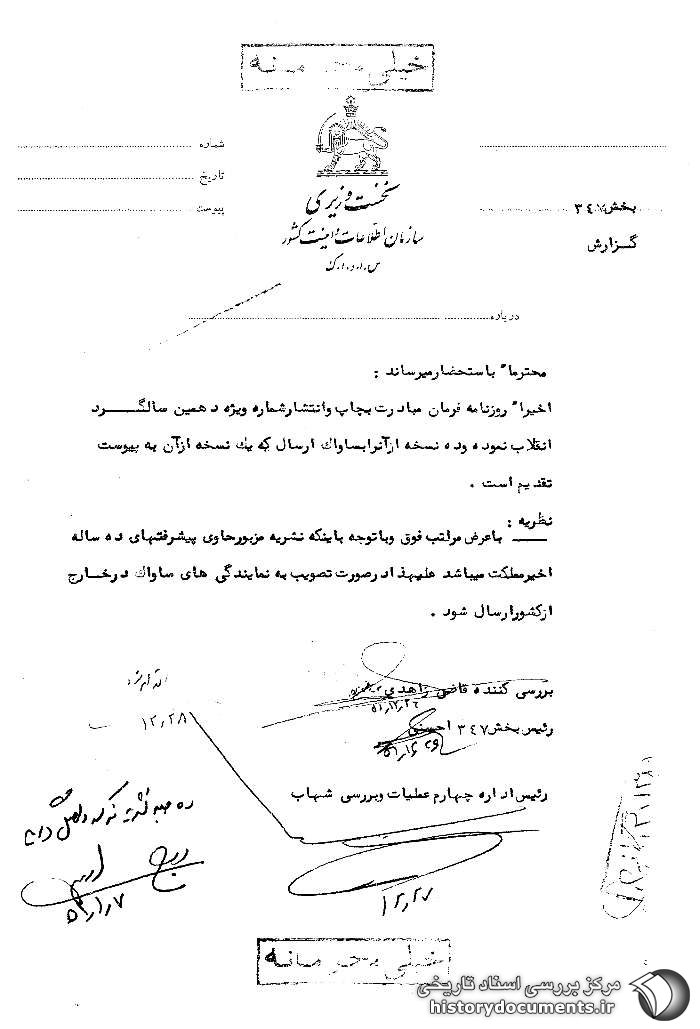 خیلی محرمانه
نخست وزیری
سازمان اطلاعات و امنیت کشور
س.ا.و.ا.ک
شماره
تاریخ
پیوست
بخش ۳۴۷
گزارش
درباره
محترماً باستحضار میرساند :
اخیراً روزنامه فرمان مبادرت بچاپ وانتشار شماره ویژه دهمین سالگرد
انقلاب نموده وده نسخه ازآنرا بساواک ارسال که یک نسخه ازآن به پیوست
تقدیم است .
نظریه :
باعرض مراتب فوق وباتوجه باینکه نشریه مزبورحاوی پیشرفتهای ده ساله
اخیرمملکت میباشد علیهذا درصورت تصویب به نمایندگی های ساواک درخارج
ازکشورارسال شود .
بررسی کننده قاضی زاهدی
۵۱،۱۲،۲۶
رئیس بخش ۳۴۷ احسنی
۱۲،۲۸
رئیس اداره چهارم عملیات وبررسی شهاب
۱۲،۲۷
خیلی محرمانه
مرکز بررسی اسناد تاریخی
historydocuments.ir